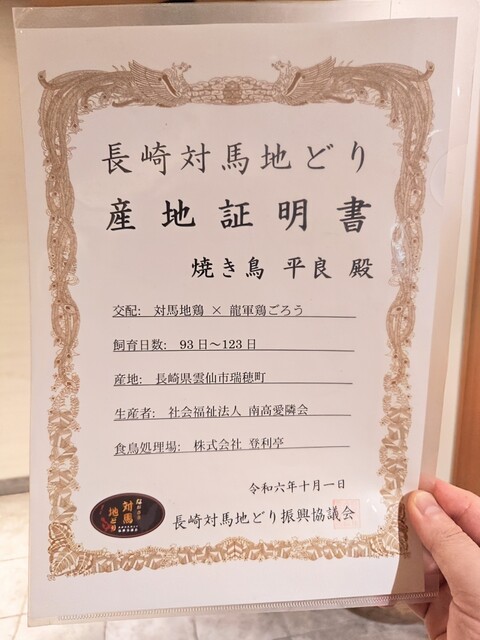 長崎対馬地どり
産地証明書
焼き鳥 平良 殿
交配: 対馬地鶏 × 龍軍鶏ごろう
飼育日数: 93日～123日
産地: 長崎県雲仙市瑞穂町
生産者: 社会福祉法人 南高愛隣会
食鳥処理場: 株式会社 登利亭
令和六年十月一日
長崎対馬地どり振興協議会
対馬
地どり